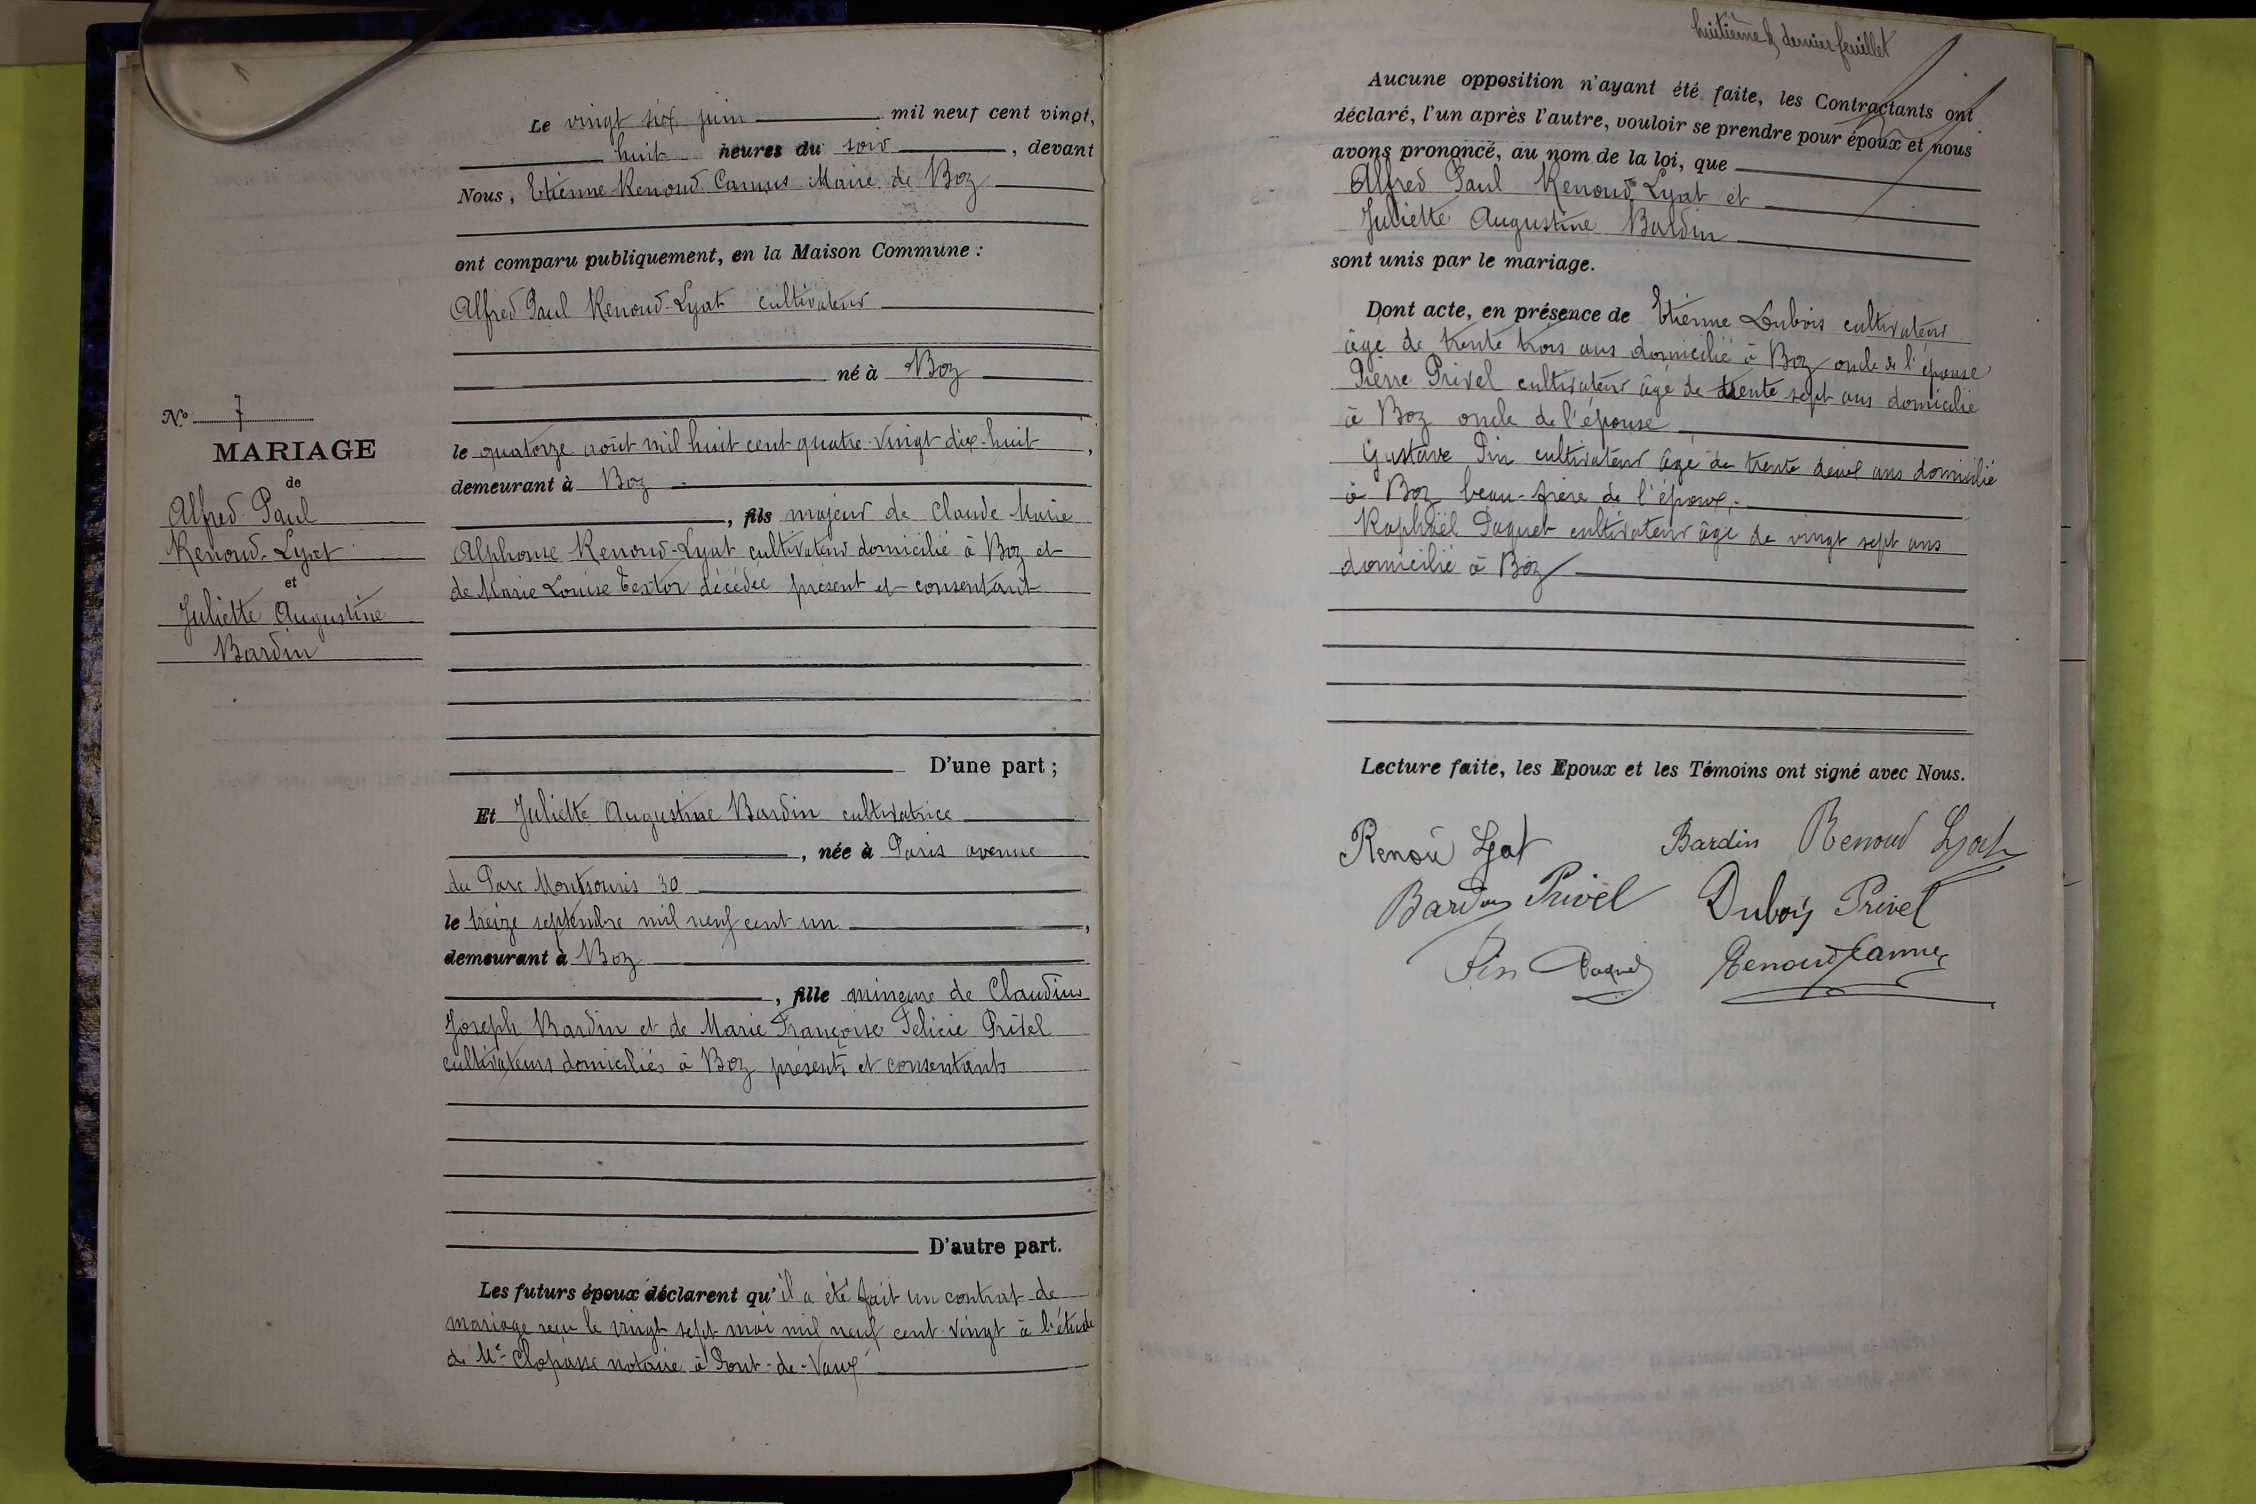 Le vingt six juin mil neuf cent vingt,
huit heures du soir, devant
Nous, Etienne Renoud Camus Maire de Boz
ont comparu publiquement, en la Maison Commune :
Alfred Paul Renoud-Lyat cultivateur
né à Boz
le quatorze août mil huit cent quatre-vingt dix-huit,
demeurant à Boz
, fils majeur de Claude Marie
Alphonse Renoud-Lyat cultivateur domicilié à Boz et
de Marie Louise Textor décédée présent et consentant
D'une part ;
Et Juliette Augustine Bardin cultivatrice
, née à Paris avenue
du Parc Montsouris 30
le treize septembre mil neuf cent un,
demeurant à Boz
, fille mineure de Claudius
Joseph Bardin et de Marie Françoise Félicie Privel
cultivateurs domiciliés à Boz présents et consentants
D'autre part.
Les futurs époux déclarent qu'il a été fait un contrat de
mariage reçu le vingt sept mai mil neuf cent vingt à l'étude
de Me Chopasse notaire à Pont-de-Vaux
No 7
MARIAGE
de
Alfred Paul
Renoud-Lyat
et
Juliette Augustine
Bardin
huitième & dernier feuillet
Aucune opposition n'ayant été faite, les Contractants ont
déclaré, l'un après l'autre, vouloir se prendre pour époux et nous
avons prononcé, au nom de la loi, que
Alfred Paul Renoud Lyat et
Juliette Augustine Bardin
sont unis par le mariage.
Dont acte, en présence de Etienne Dubois cultivateur
âgé de trente trois ans domicilié à Boz oncle de l'épouse
Pierre Privel cultivateur âgé de trente sept ans domicilié
à Boz oncle de l'épouse
Gustave Pin cultivateur âgé de trente deux ans domicilié
à Boz beau-frère de l'époux,
Raphaël Paquet cultivateur âgé de vingt sept ans
domicilié à Boz
Lecture faite, les Epoux et les Témoins ont signé avec Nous.
Renou Lyat Bardin Renoud Lyat
Bardin Privel Dubois Privel
Pin Paquet Renoud Camus